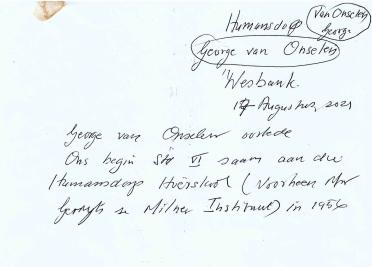 Humansdorp
Van Onselen
George
George van Onselen
Wesbank.
17 Augustus, 2021
George van Onselen oorlede
Ons begin Std VI saam aan die
Humansdorp Hoërskool (voorheen
se Milner Instituut) in 1956